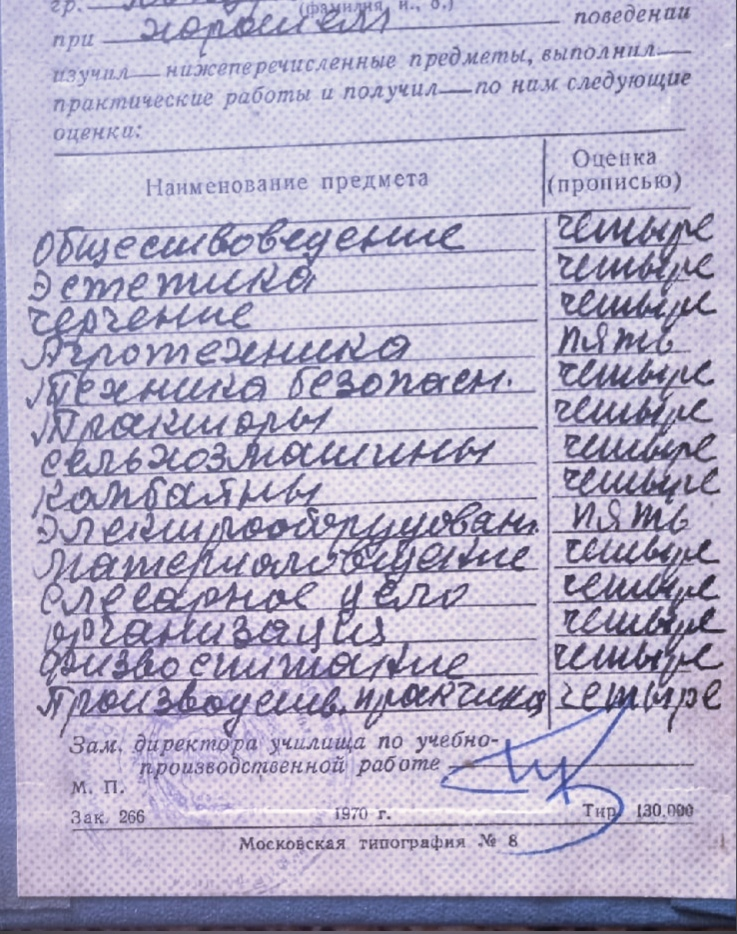 гр.
(фамилия, и., о.)
при хорошем поведении
изучил— нижеперечисленные предметы, выполнил—
практические работы и получил—по ним следующие
оценки:
Наименование предмета Оценка (прописью)
Обществоведение четыре
Эстетика четыре
Черчение четыре
Агротехника пять
Техника безопасн. четыре
Тракторы четыре
Сельхозмашины четыре
Комбайны четыре
Электрооборудован. пять
Материаловедение четыре
Слесарное дело четыре
Организация четыре
Физвоспитание четыре
Производств. практика четыре
Зам. директора училища по учебно-
производственной работе
М. П.
Зак. 266 1970 г. Тир. 130.000
Московская типография № 8